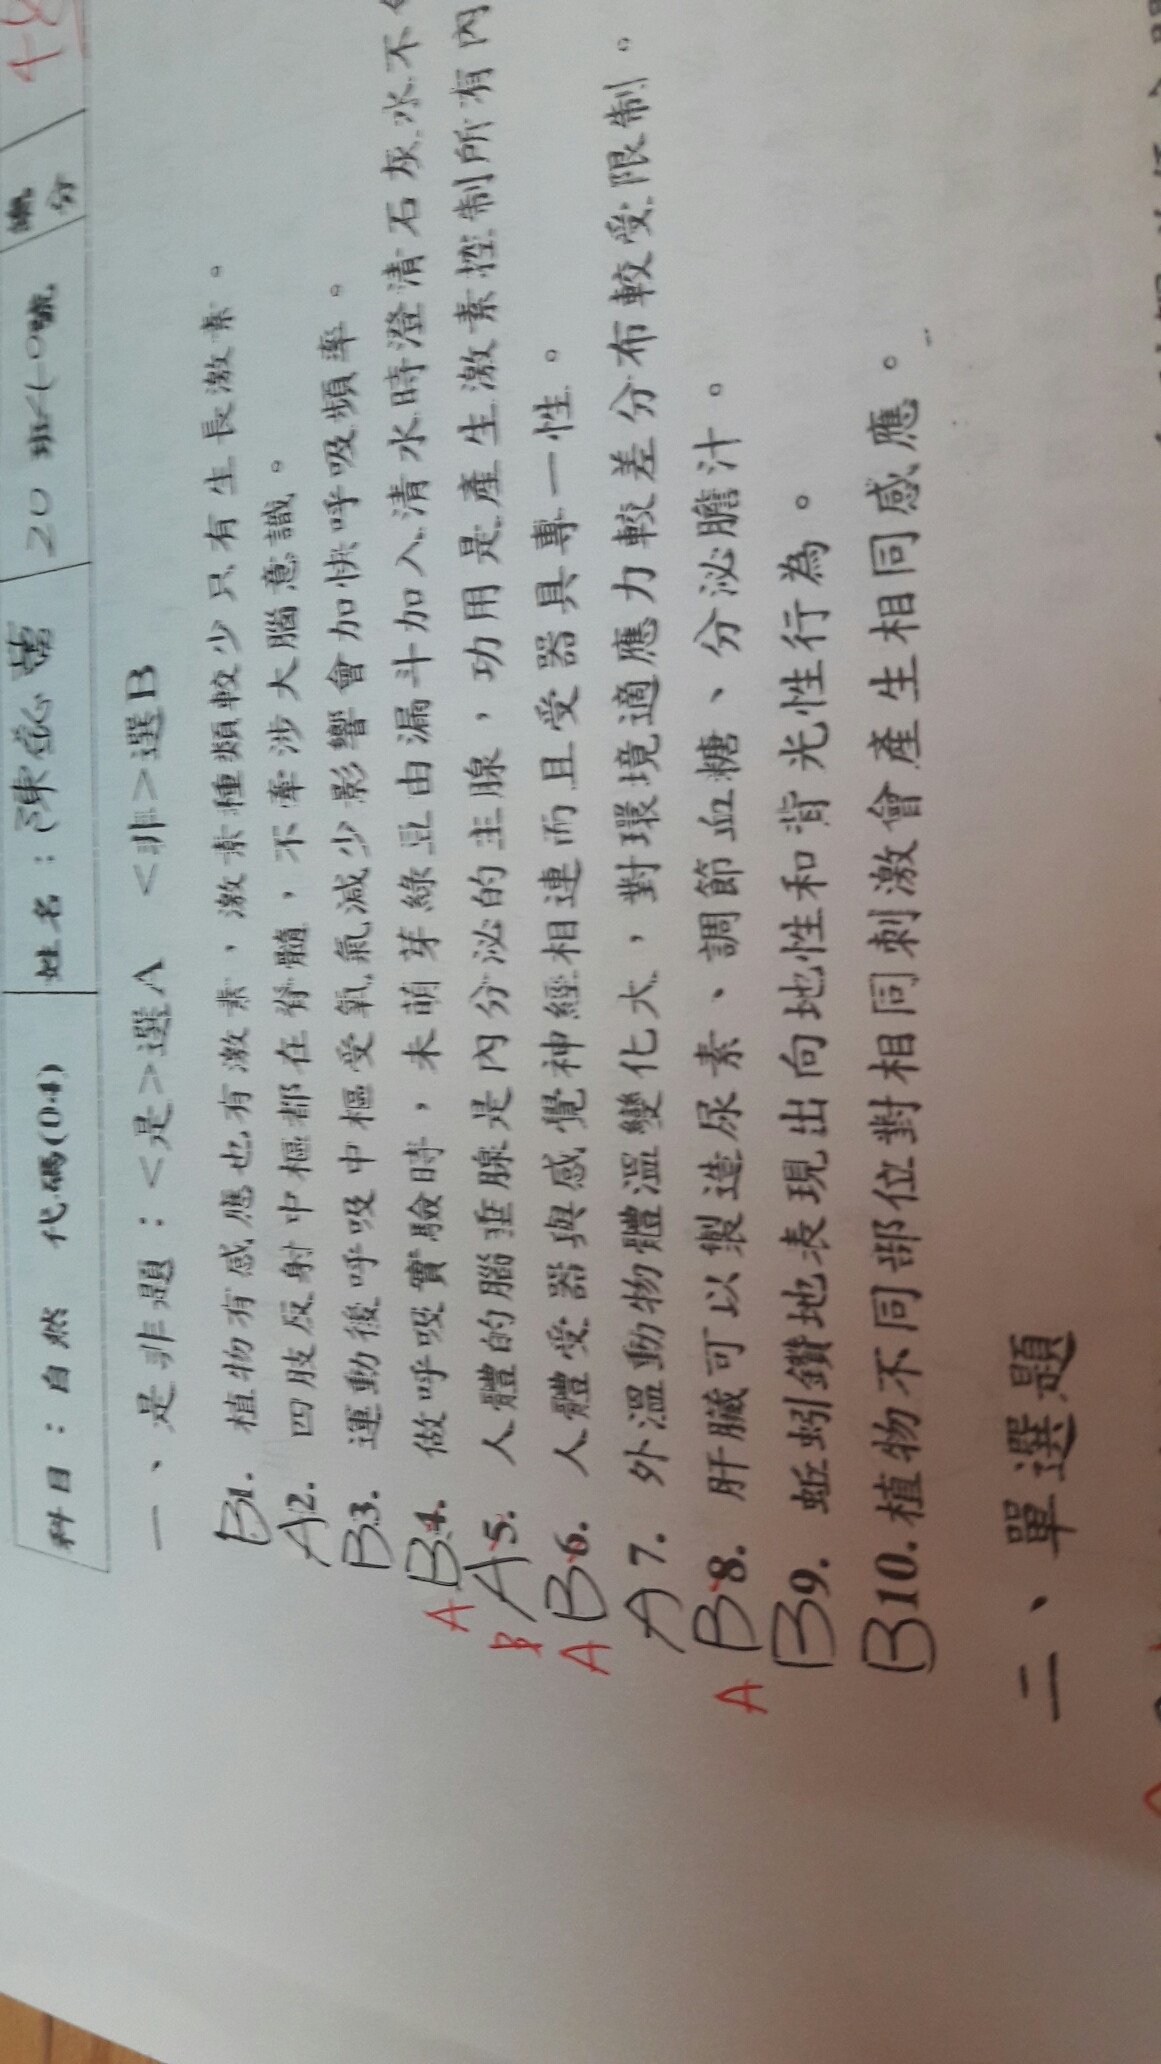 科目：自然 代碼(04) 姓名：陳 20 班 10號 總分 48
一、是非題：<是>選A <非>選B
B1. 植物有感應也有激素，激素種類較少只有生長激素。
A2. 四肢反射中樞都在脊髓，不牽涉大腦意識。
B3. 運動後呼吸中樞受氧氣減少影響會加快呼吸頻率。
A B4. 做呼吸實驗時，未萌芽綠豆由漏斗加入清水時澄清石灰水不
B A5. 人體的腦垂腺是內分泌的主腺，功用是產生激素控制所有內
A B6. 人體受器與感覺神經相連而且受器具專一性。
A7. 外溫動物體溫變化大，對環境適應力較差分布較受限制。
A B8. 肝臟可以製造尿素、調節血糖、分泌膽汁。
B9. 蚯蚓鑽地表現出向地性和背光性行為。
B10. 植物不同部位對相同刺激會產生相同感應。
二、單選題